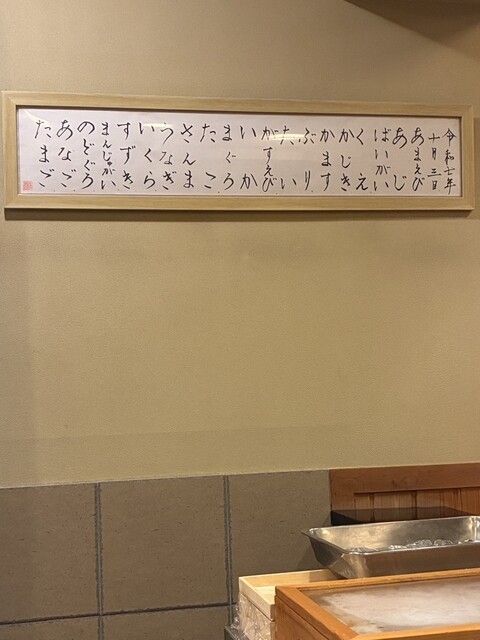 令和七年
十月三日
あまえび
あじ
ばいがい
くえ
かじき
かます
ぶり
たい
がすえび
いか
まぐろ
たこ
さんま
つなぎ
いくら
すずき
まんじゅがい
のどぐろ
あなご
たまご